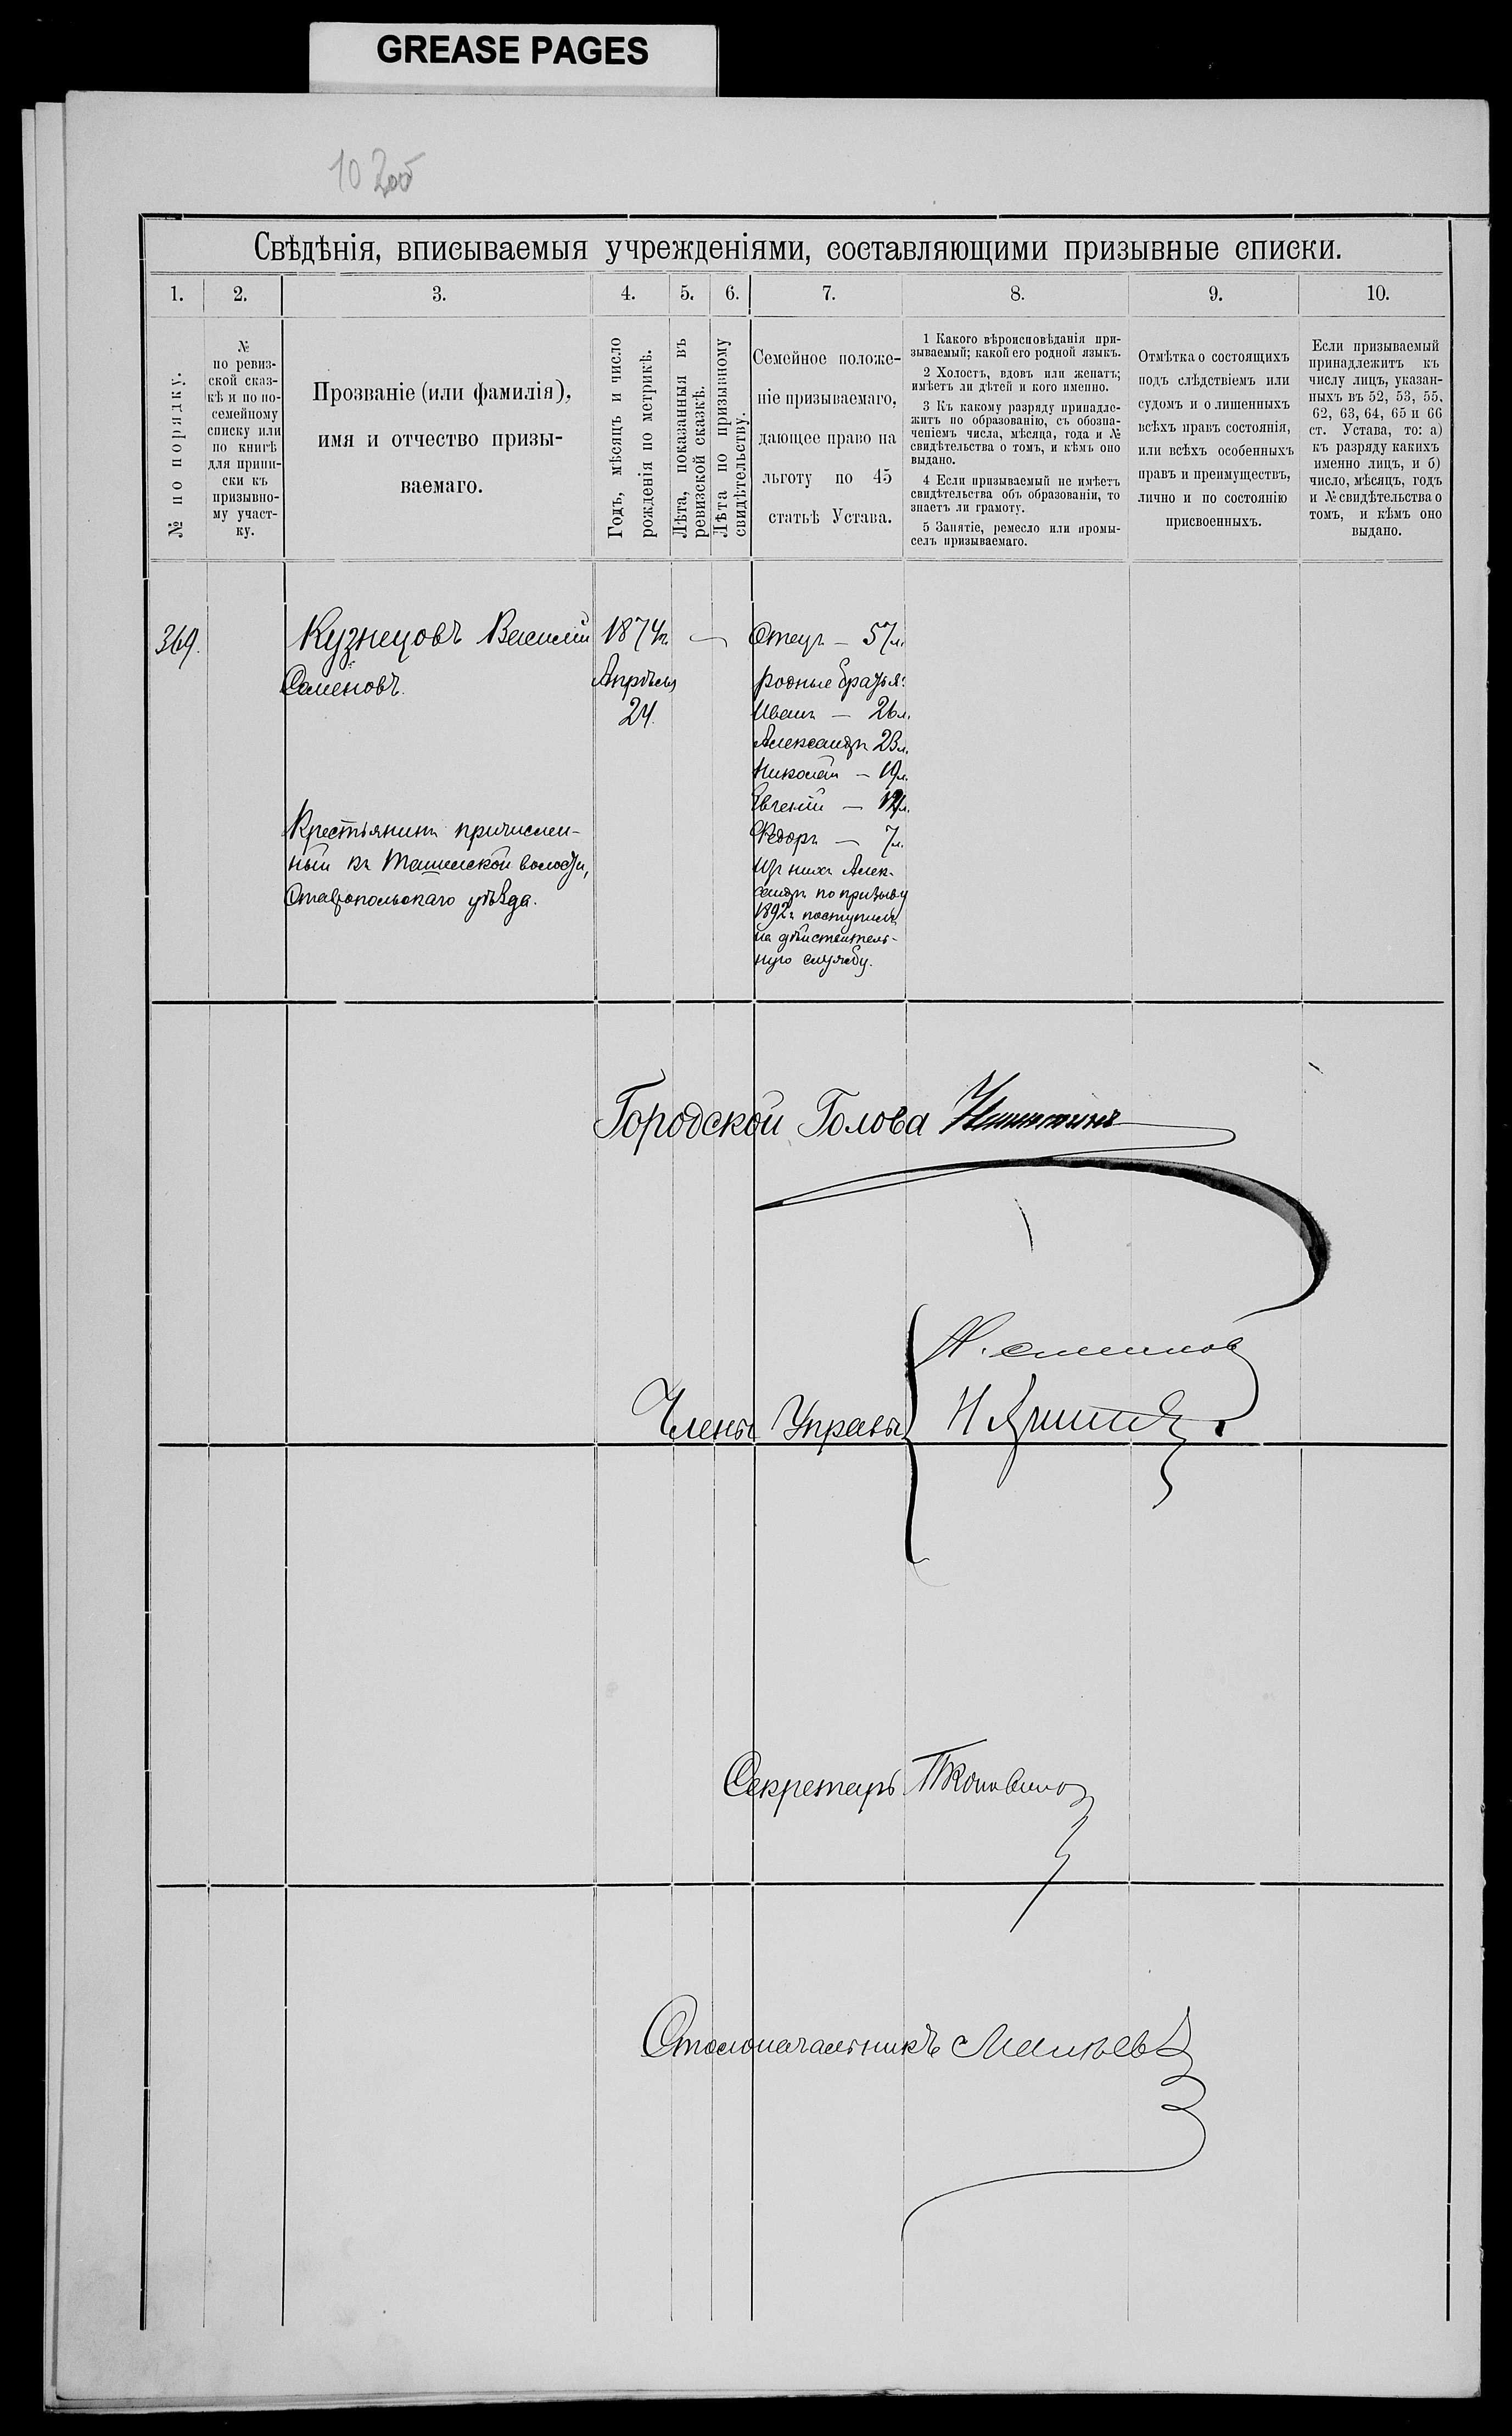 GREASE PAGES
Свѣдѣнія, вписываемыя учрежденіями, составляющими призывные списки.
1. 2. 3. 4. 5. 6. 7. 8. 9. 10.
№ по порядку.
№
по ревиз-
ской сказ-
кѣ и по по-
семейному
списку или
по книгѣ
для припи-
ски къ
призывно-
му участ-
ку.
Прозваніе (или фамилія),
имя и отчество призы-
ваемаго.
Годъ, мѣсяцъ и число
рожденія по метрикѣ.
Лѣта, показанныя въ
ревизской сказкѣ.
Лѣта по призывному
свидѣтельству.
Семейное положе-
ніе призываемаго,
дающее право на
льготу по 45
статьѣ Устава.
1 Какого вѣроисповѣданія при-
зываемый; какой его родной языкъ.
2 Холостъ, вдовъ или женатъ;
имѣетъ ли дѣтей и кого именно.
3 Къ какому разряду принадле-
житъ по образованію, съ обозна-
ченіемъ числа, мѣсяца, года и №
свидѣтельства о томъ, и кѣмъ оно
выдано.
4 Если призываемый не имѣетъ
свидѣтельства объ образованіи, то
знаетъ ли грамоту.
5 Занятіе, ремесло или промы-
селъ призываемаго.
Отмѣтка о состоящихъ
подъ слѣдствіемъ или
судомъ и о лишенныхъ
всѣхъ правъ состоянія,
или всѣхъ особенныхъ
правъ и преимуществъ,
лично и по состоянію
присвоенныхъ.
Если призываемый
принадлежитъ къ
числу лицъ, указан-
ныхъ въ 52, 53, 55,
62, 63, 64, 65 и 66
ст. Устава, то: а)
къ разряду какихъ
именно лицъ, и б)
число, мѣсяцъ, годъ
и № свидѣтельства о
томъ, и кѣмъ оно
выдано.
369.
Кузнецовъ Василій
Семеновъ.
Крестьянинъ причислен-
ный къ Ташелской волости,
Ставропольскаго уѣзда.
1874г.
Апрѣля
24.
—
Отецъ — 57л.
родные братья:
Иванъ — 26л.
Александръ 23л.
Николай — 19л.
Евгеній — л.
Ѳедоръ — 7л.
Изъ нихъ Алек-
сандръ по призыву
1892г. поступилъ
на дѣйствитель-
ную службу.
Городской Голова
Члены Управы
Секретарь
Столоначальникъ